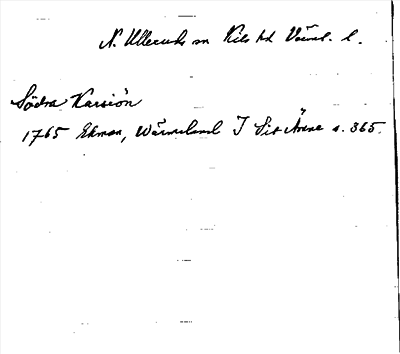 N. Ulleruds sn Kils hd Värml. l.
Södra Karsiön
1765 Ekman, Wärmeland I Sit Ämne s. 365.